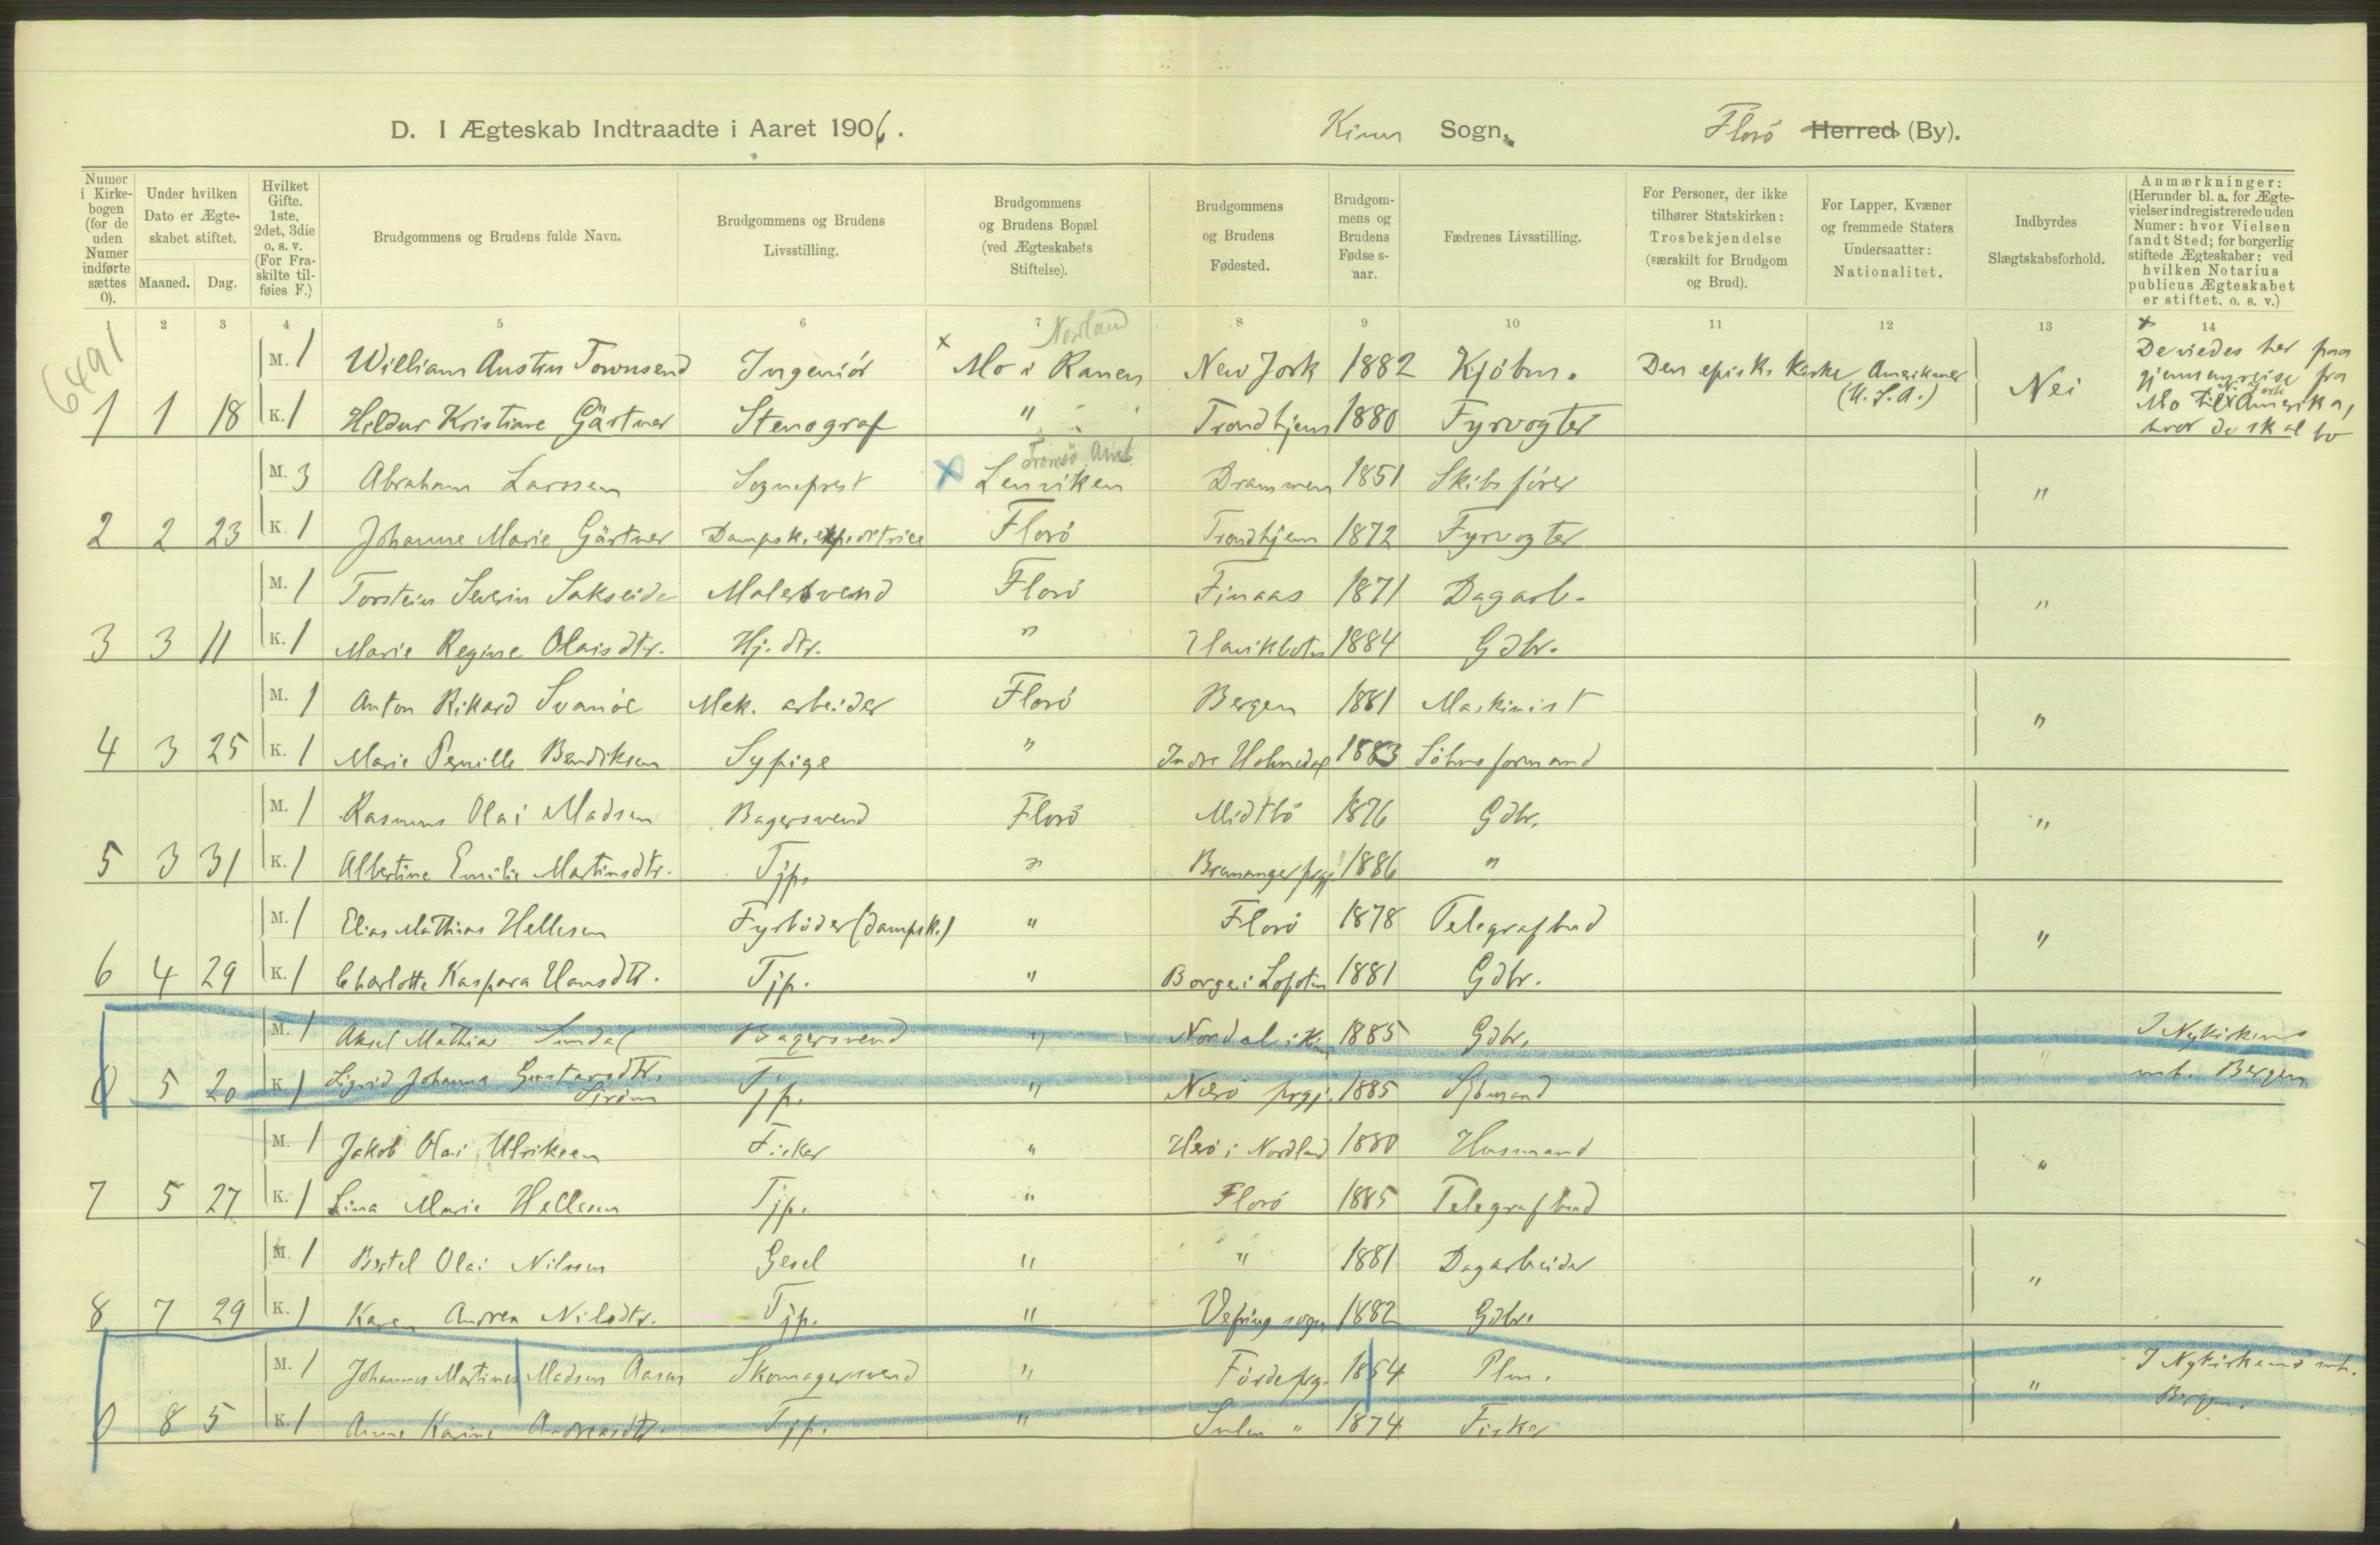 D. I Ægteskab Indtraadte i Aaret 1906.
Kinn Sogn.
Florö Herred (By).
Numer i Kirke-bogen (for de uden Numer indførte sættes 0).
Under hvilken Dato er Ægte-skabet stiftet.
Maaned. Dag.
Hvilket Gifte. 1ste, 2det, 3die o. s. v. (For Fra-skilte til-føies F.)
Brudgommens og Brudens fulde Navn.
Brudgommens og Brudens Livsstilling.
Brudgommens og Brudens Bopæl (ved Ægteskabets Stiftelse).
Brudgommens og Brudens Fødested.
Brudgom-mens og Brudens Fødse s-aar.
Fædrenes Livsstilling.
For Personer, der ikke tilhører Statskirken: Trosbekjendelse (særskilt for Brudgom og Brud).
For Lapper, Kvæner og fremmede Staters Undersaatter: Nationalitet.
Indbyrdes Slægtskabsforhold.
Anmærkninger: (Herunder bl. a. for Ægte-vielser indregistrerede uden Numer: hvor Vielsen fandt Sted; for borgerlig stiftede Ægteskaber: ved hvilken Notarius publicus Ægteskabet er stiftet. o. s. v.)
1 2 3 4 5 6 7 8 9 10 11 12 13 14
6491
Nordland
M. 1 William Austin Townsend Ingeniör x Mo i Ranen New Jork 1882 Kjöbm. Den episk. Kirke Amerikaner (U.S.A.) Nei
x De viedes her paa gjennemreise fra Mo til Amerika, hvor de skal bo
1 1 18 K. 1 Hildur Kristiane Gärtner Stenograf " Trondhjem 1880 Fyrvogter
Tromsö Amt
M. 3 Abraham Larssen Sogneprest x Lenviken Drammen 1851 Skibsförer "
2 2 23 K. 1 Johanne Marie Gärtner Dampsk.expeditrice Florö Trondhjem 1872 Fyrvogter
M. 1 Torstein Severin Sakseide Malersvend Florö Finaas 1871 Dagarb. "
3 3 11 K. 1 Marie Regine Olaisdtr. Hj. dtr. " 1884 Gdbr.
M. 1 Anton Rikard Svanöe Mek. arbeider Florö Bergen 1881 Maskinist "
4 3 25 K. 1 Marie Pernille Bendiksen Sypige " Indre Holmedal 1883
M. 1 Rasmus Olai Madsen Bagersvend Florö Midtbö 1876 Gdbr. "
5 3 31 K. 1 Albertine Emilie Martinsdtr. Tjp. " Bremanger prgj. 1886 "
M. 1 Elias Mathias Hellesen Fyrböder (dampsk.) " Florö 1878 Telegrafbud "
6 4 29 K. 1 Charlotte Kaspara Hansdtr. Tjp. " Borge i Lofoten 1881 Gdbr.
M. 1 Aksel Mathias Sundal Bagersvend " Nordal i Kinn 1885 Gdbr. I Nykirkens
0 5 20 K. 1 Sigrid Johanna Gustavsdtr. Ström Tjp. " Nærö prgj. 1885 Sjömand " mh. Bergen
M. 1 Jakob Olai Ulriksen Fisker " Herö i Nordland 1880 Husmand "
7 5 27 K. 1 Lina Marie Hellesen Tjp. " Florö 1885 Telegrafbud
M. 1 Bertel Olai Nilssen Gesel " " 1881 Dagarbeider "
8 7 29 K. 1 Karen Andrea Nilsdtr. Tjp. " Vefring sogn 1882 Gdbr.
M. 1 Johannes Martinus Madsen Aasen Skomagersvend " Förde prg. 1854 Plm. I Nykirkens mh.
0 8 5 K. 1 Anne Karine Andreasdtr. Tjp. " Sulen " 1874 Fisker " Bergen.